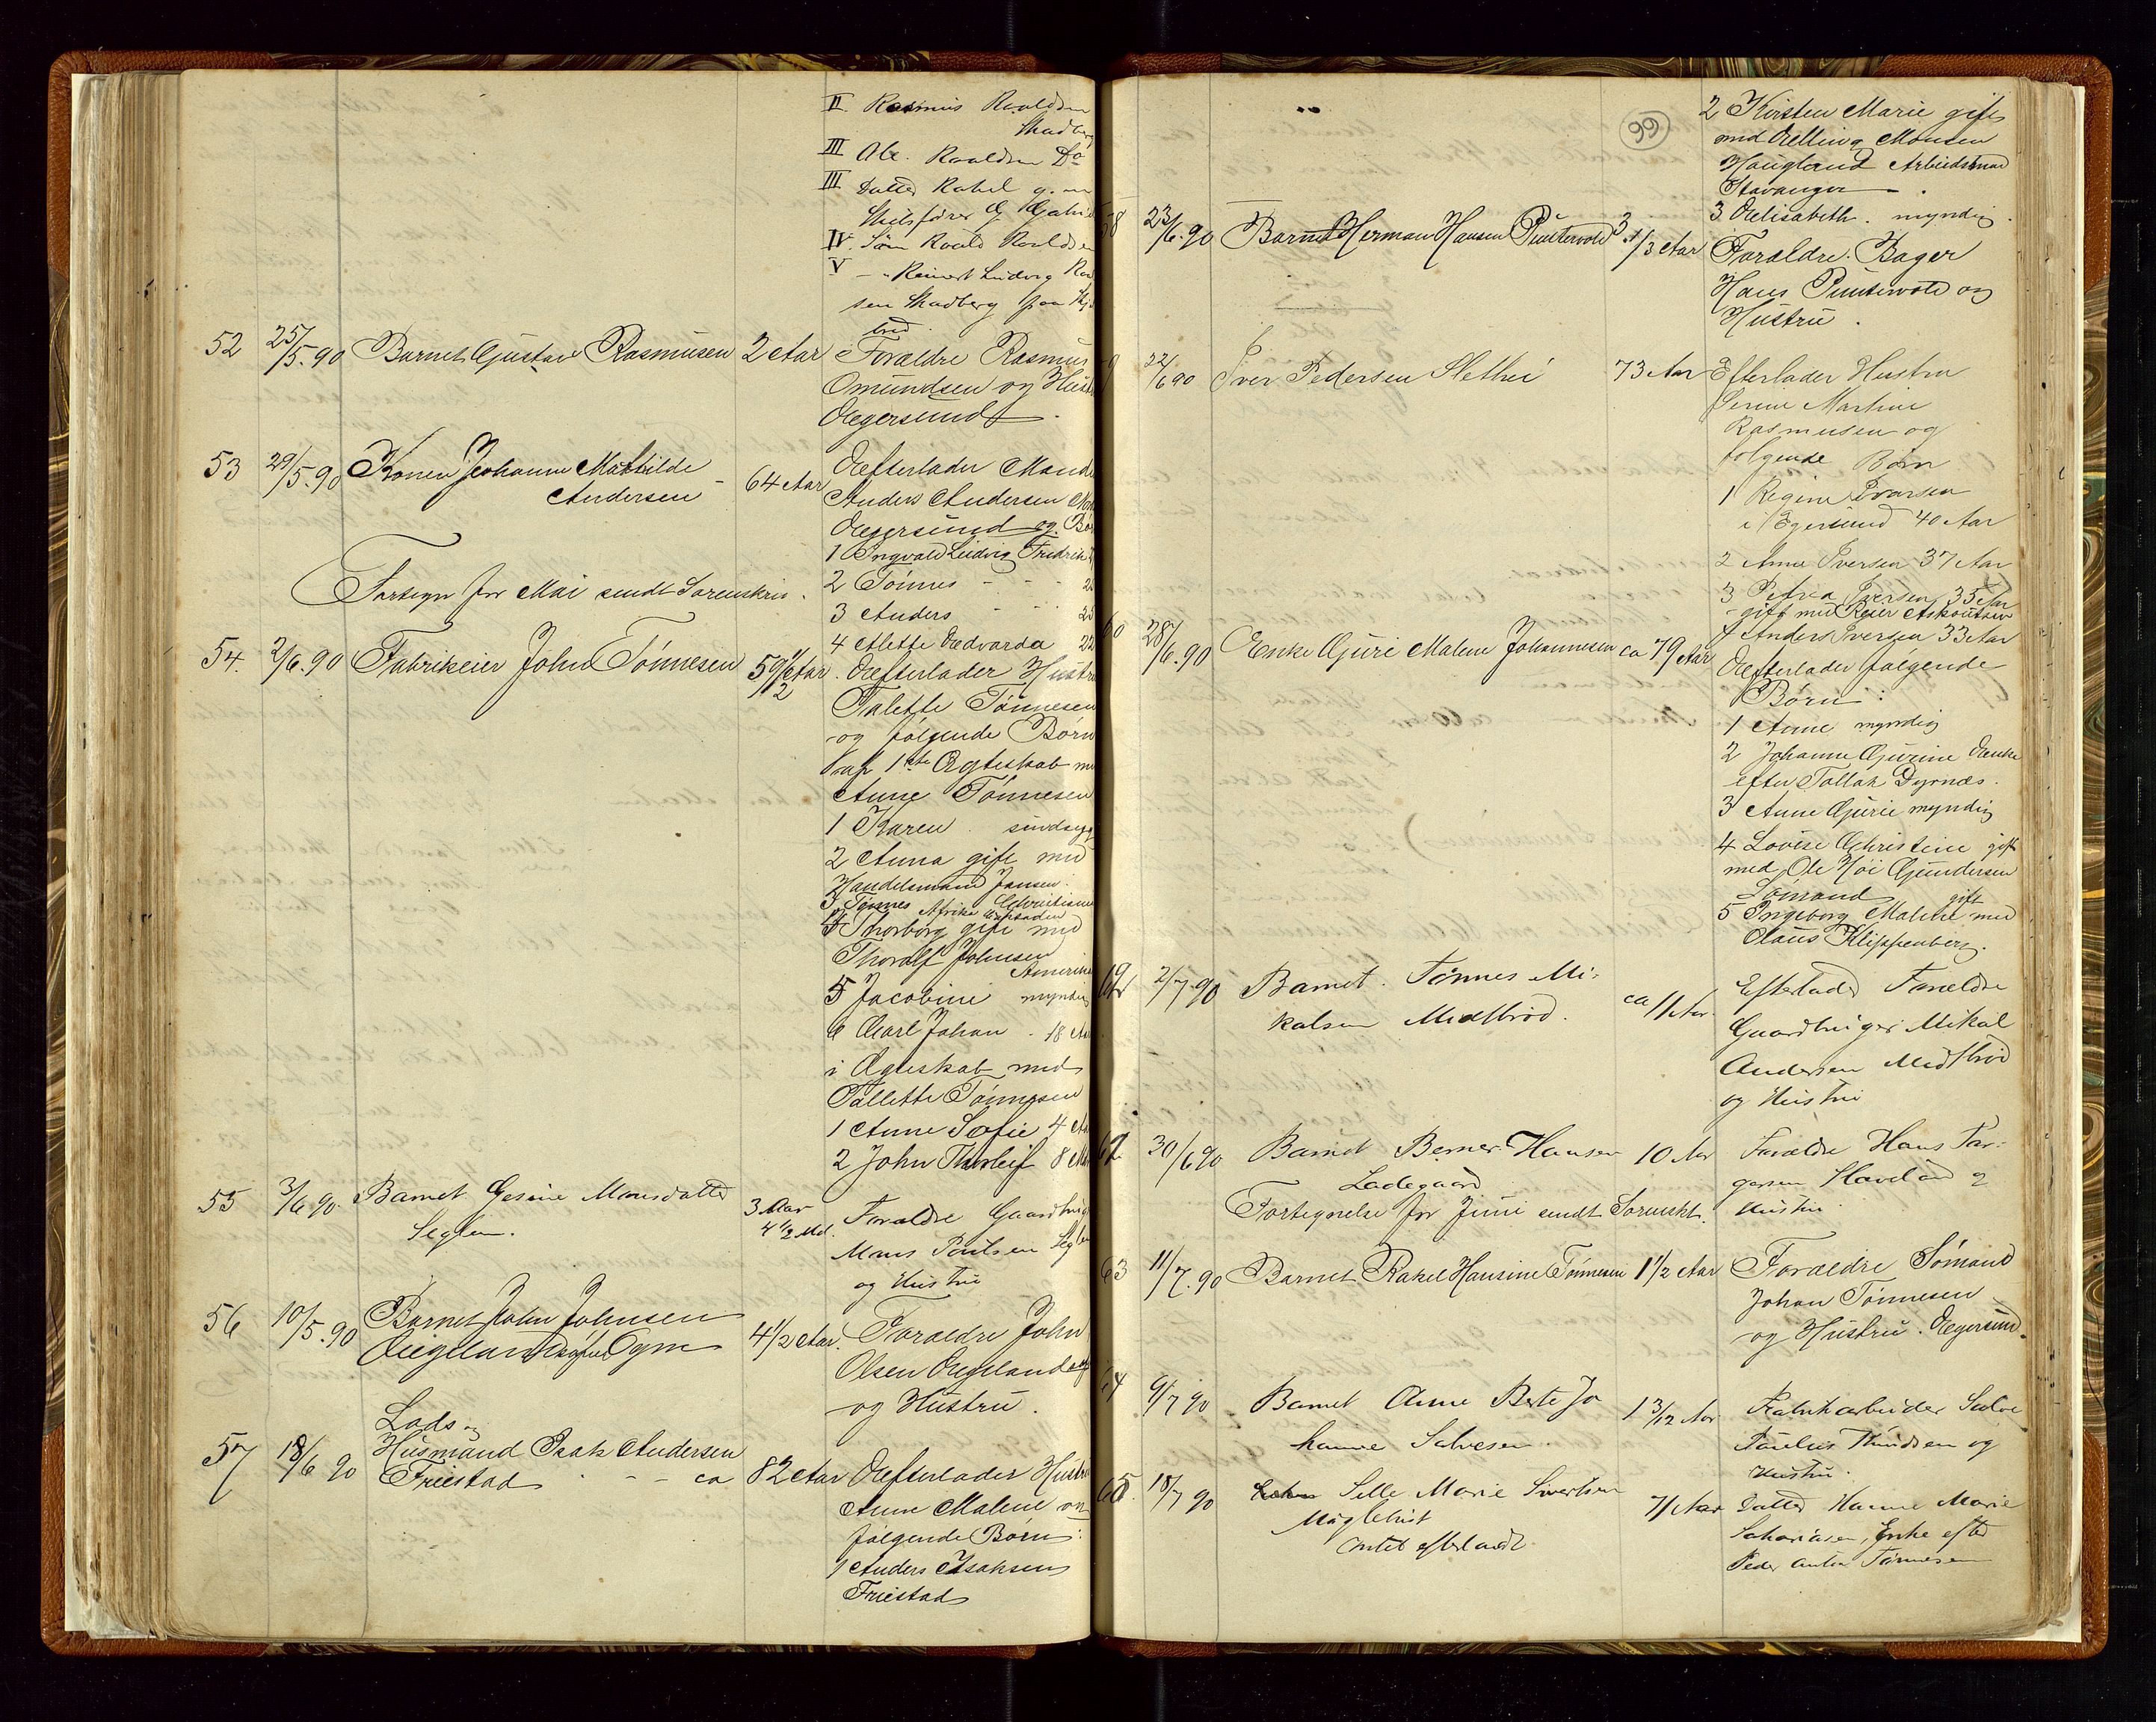 II. Rasmus Raaldsen
Skadberg
III Ole Raaldsen Do
III Datter Rakel g. m
Skibsfører G Gabri
IV. Søn Roald Roaldsen
V — " Reinert Ludvig Roa
sen Skadberg paa
52 25/5.90 Barnet Gustav Rasmusen 2 Aar Forældre Rasmus
Omundsen og Hust
Egersund
53 29/5.90 Konen Johanne Mathilde
Andersen 64 Aar Efterlader Mand
Anders Andersen
Egersund og Bø
1 Ingvald Ludvig Fredrik
2 Tønnes
3 Anders
4 Alette Edvarda 22
Fortegn for Mai sendt Sorenskriv.
54. 2/6.90 Fabrikeier John Tønnesen 59 1/2 Aar. Efterlader Hustru
Talette Tønnesen
og følgende Børn
af 1ste Ægteskab m
Anne Tønnesen
1 Karen sindsyg
2 Anna gift med
Handelsmand Jansen
3 Tønnes Afrika
4 Thorborg gift med
Thoralf Johnsen
Amerika
5 Jacobine myndig
6 Carl Johan - 18 Aar
i Ægteskab med
Tallette Tønnesen
1 Anne Sofie 4 A
2 John Thorleif 8 M
55 3/6 90 Barnet Gesine Monsdatter
Seglem. 3 Aar
4 1/2 Md. Forældre Gaardbrug
Mons Poulsen Segle
og Hustru
56 10/5.90 Barnet John Johnsen
Eigeland Ogne 4 1/2 Aar. Forældre John
Olsen Eigeland
og Hustru.
57 18/6 90 Lods og
Husmand Isak Andersen
Friestad - - ca 82 Aar Efterlader Hustru
Anne Malene og
følgende Børn:
1 Anders Isaksen
Friestad
99
2 Kirsten Marie gift
med Elling Monsen
Haugland Arbeidsmand
Stavanger
3 Elisabeth. myndig.
58 23/6.90 Barnet Herman Hansen Puntervold 3 1/3 Aar Forældre. Bager
Hans Puntervold og
Hustru.
9 22/6 90 Iver Pedersen Slethei 73 Aar Efterlader Hustru
Serine Martine
Rasmusen og
følgende Børn
1 Regine Iversen
i Egersund 40 Aar
2 Anne Iversen 37 Aar
3 Petrea Iversen 35 Aar
gift med Reier
4 Anders Iversen 33 Aar
60 28/6.90 Enke Guri Malene Johannesen ca 79 Aar Efterlader følgende
Børn:
1 Anne myndig
2 Johanne Gurine Enke
efter Tollak Dyrnæs.
3 Anne Gurie myndig
4 Lovise Christine gift
med Ole Høi Gundersen
Sømand
5 Ingeborg Malene gift med
Claus Klippenberg.
2/7.90 Barnet Tønnes Mi-
kalsen Midtbrød. ca 11 Aar. Efterlader Forældre
Gaardbruger Mikal
Andersen Midtbrød
og Hustru
62 30/6 90 Barnet Berner Hansen
Ladegaard 10 Aar Forældre Hans Tor-
gersen Hovland og
Hustru.
Fortegnelse for Juni sendt Sorenskr.
63 11/7.90 Barnet Rakel Hansine Tønnesen 1 1/2 Aar Forældre Sømand
Johan Tønnesen
og Hustru. Egersund.
64 9/7 90 Barnet Anne Berte Jo
hanne Salvesen 1 3/12 Aar Fabrikarbeider Salve
Paulus Knudsen og
Hustru.
65 18/7 90 Sille Marie Sivertsen
Møglehist
Intet efterladt 71 Aar Datter Hanne Marie
Sakariasen, Enke efter
Peder Anton Tønnesen